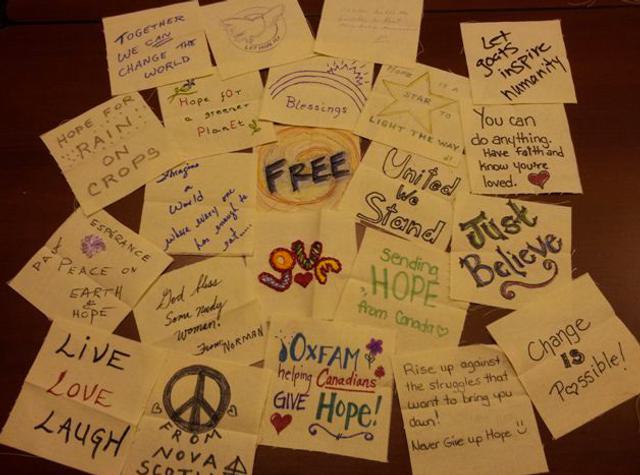 TOGETHER
WE CAN
CHANGE THE
WORLD
Let
goats
inspire
humanity
HOPE FOR
RAIN
ON
CROPS
Hope for
a greener
PlanEt
Blessings
HOPE IS A
STAR TO
LIGHT THE WAY
You can
do anything.
Have faith and
know you're
loved.
Imagine
a
World
where every one
has enough to
eat....
FREE
United
We
Stand
ESPERANCE
PEACE ON
EARTH
&
HOPE
God bless
Some needy
Woman.
From NORMAN
give
Sending
HOPE
from Canada
Just
Believe
LIVE
LOVE
LAUGH
FROM
NOVA
SCOTIA
OXFAM
helping Canadians
GIVE Hope!
Rise up against
the struggles that
want to bring you
down!
Never Give up Hope
Change
IS
Possible!